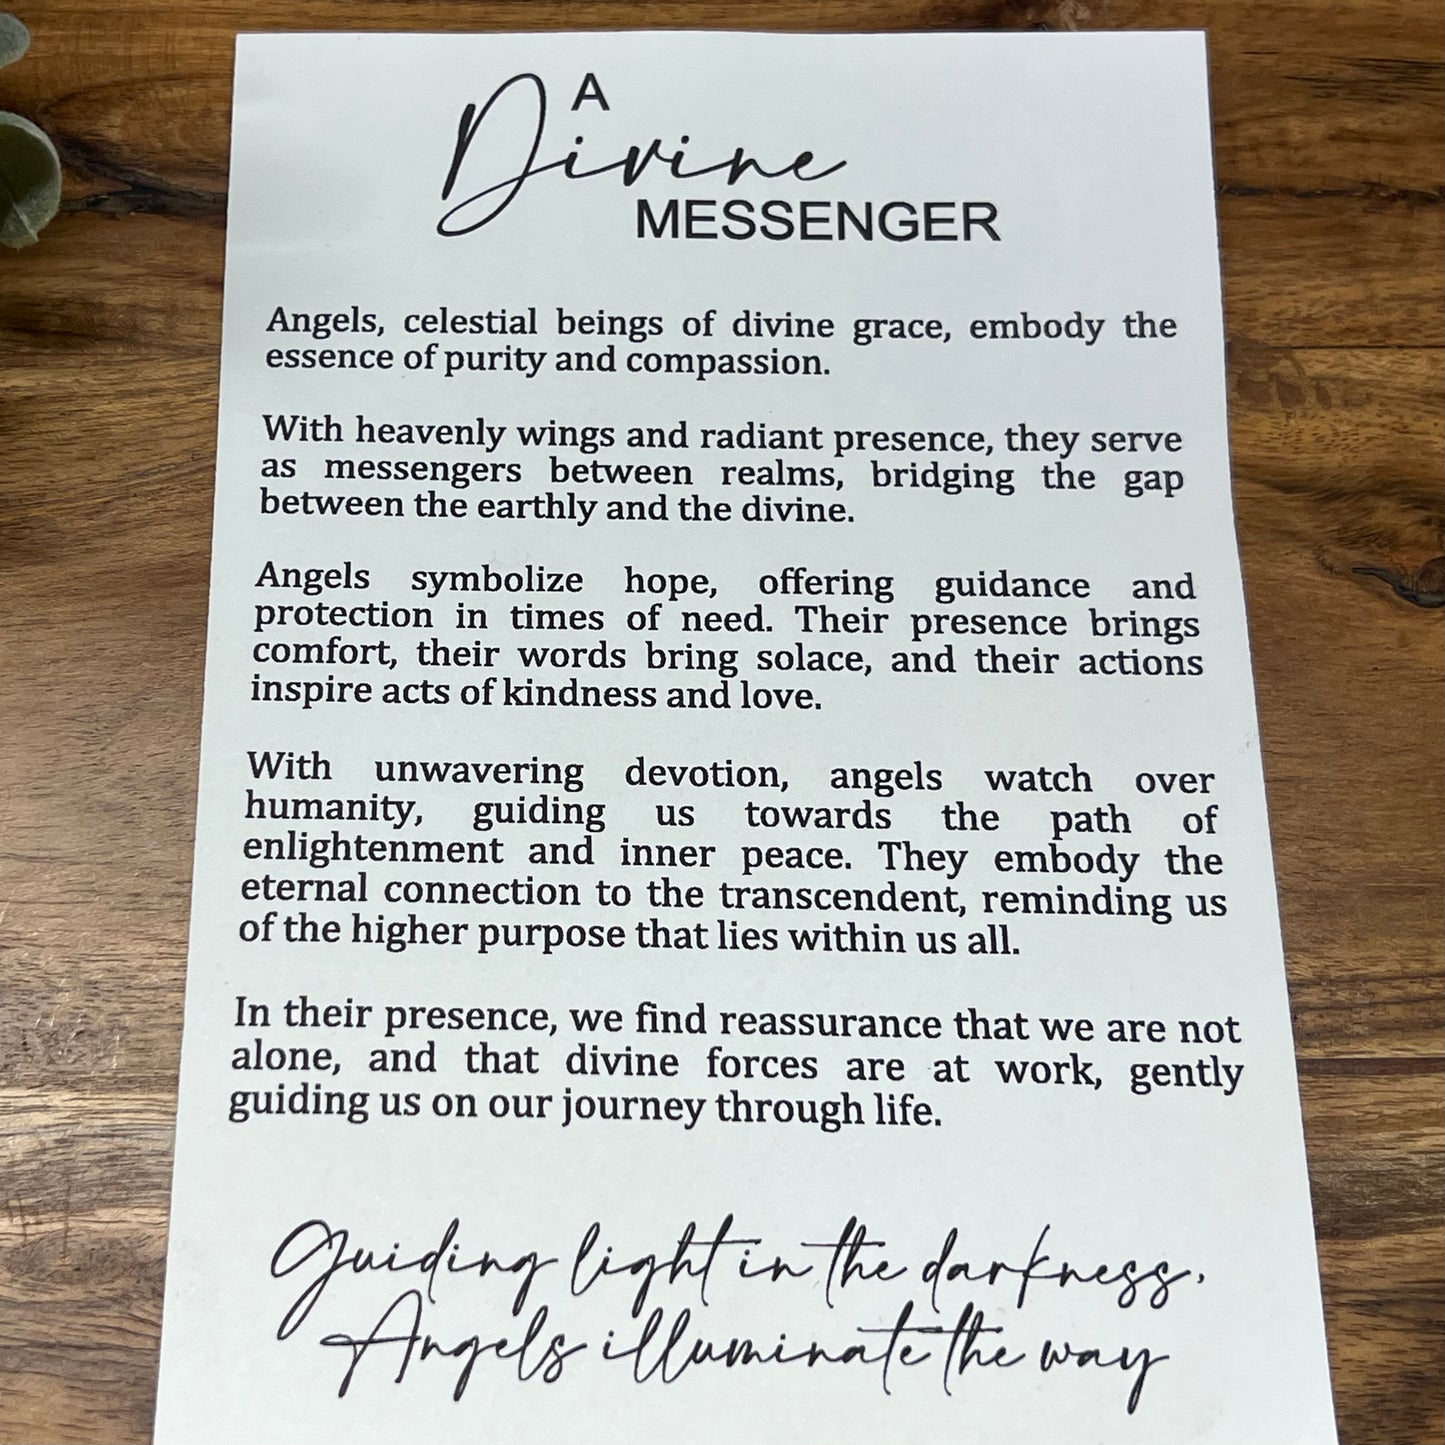 A
Divine
MESSENGER
Angels, celestial beings of divine grace, embody the
essence of purity and compassion.
With heavenly wings and radiant presence, they serve
as messengers between realms, bridging the gap
between the earthly and the divine.
Angels symbolize hope, offering guidance and
protection in times of need. Their presence brings
comfort, their words bring solace, and their actions
inspire acts of kindness and love.
With unwavering devotion, angels watch over
humanity, guiding us towards the path of
enlightenment and inner peace. They embody the
eternal connection to the transcendent, reminding us
of the higher purpose that lies within us all.
In their presence, we find reassurance that we are not
alone, and that divine forces are at work, gently
guiding us on our journey through life.
Guiding light in the darkness,
Angels illuminate the way